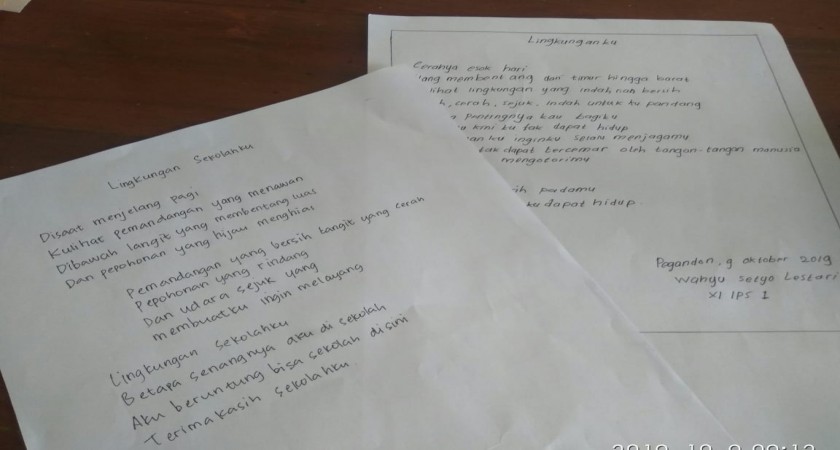 Lingkungan Sekolahku
Disaat menjelang pagi
Kulihat pemandangan yang menawan
Dibawah langit yang membentang luas
Dan pepohonan yang hijau menghias
Pemandangan yang bersih langit yang cerah
Pepohonan yang rindang
Dan udara sejuk yang
membuatku ingin melayang
Lingkungan sekolahku
Betapa senangnya aku di sekolah
Aku beruntung bisa sekolah disini
Terimakasih sekolahku
Lingkunganku
Cerahya esok hari
membentang dari timur hingga barat
lihat lingkungan yang indah nan bersih
h, cerah, sejuk, indah untuk ku pandang
pentingnya kau bagiku
kini ku tak dapat hidup
inginku selalu menjagamu
tak dapat tercemar oleh tangan-tangan manusia
mengotorimu
ih padamu
ku dapat hidup.
Pagandon, 9 oktober 2019
Wahyu Setyo Lestari
XI IPS 1